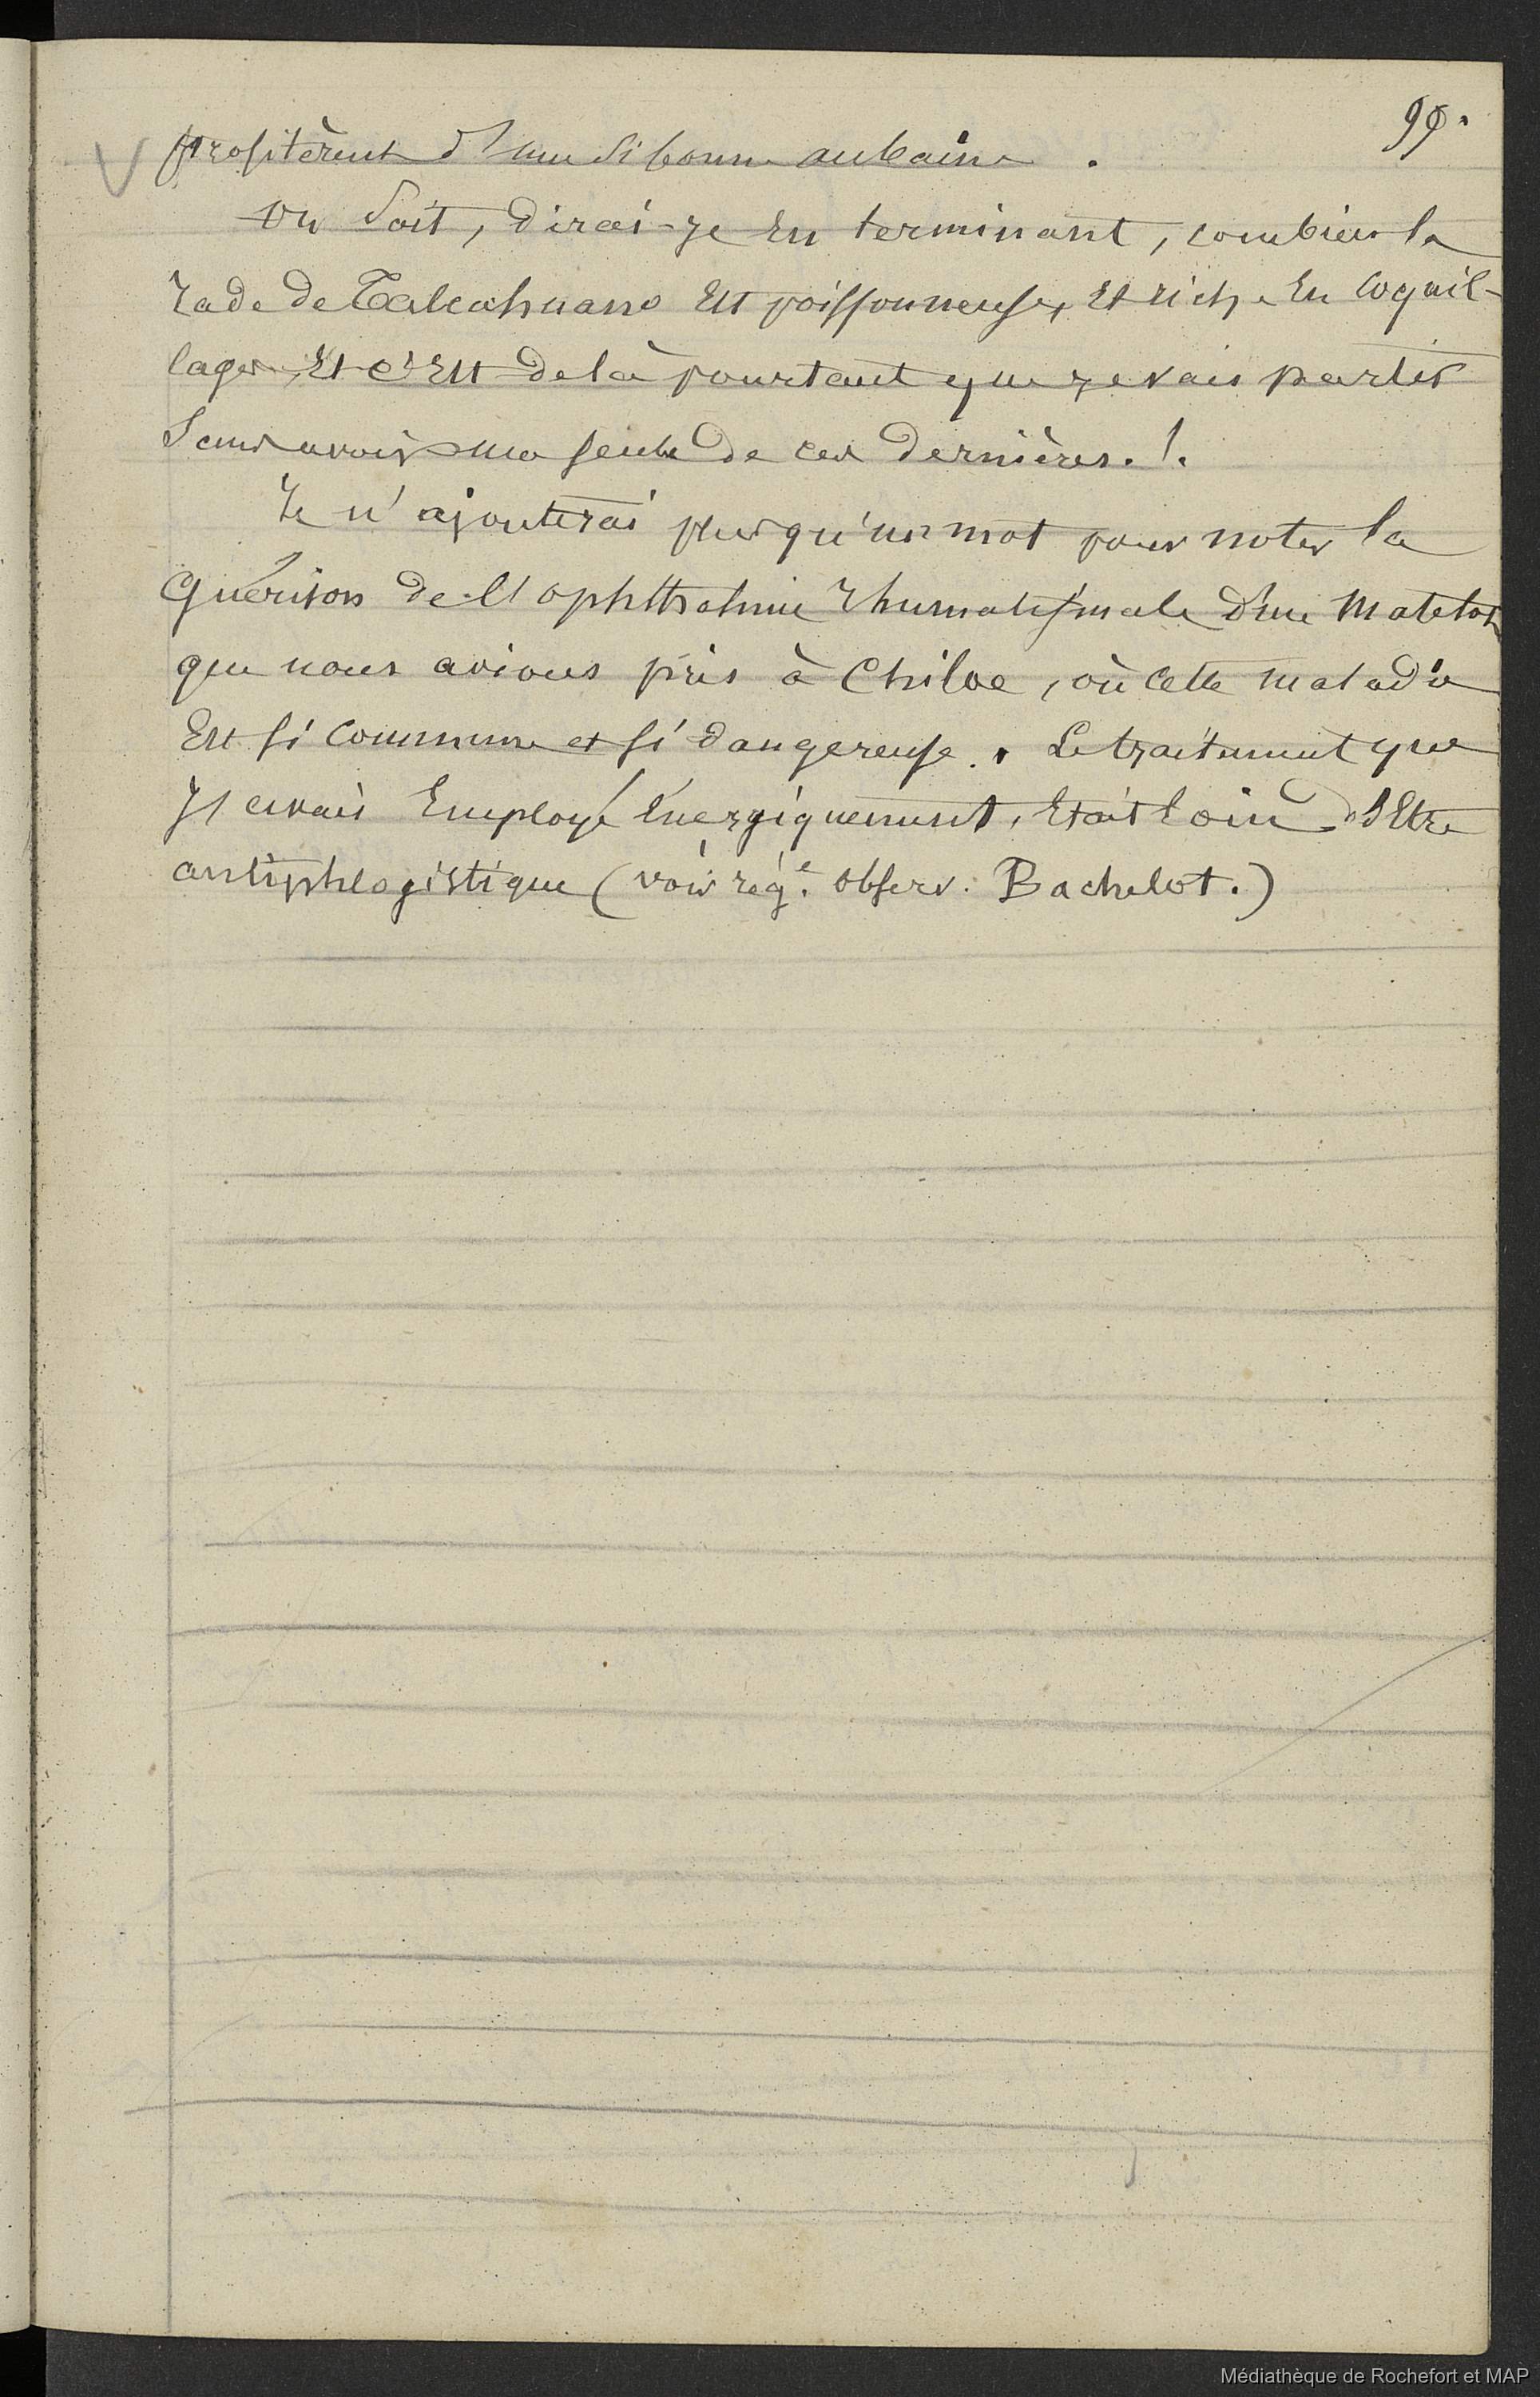 99.
profitèrent d'une si bonne aubaine.
On sait, dirai-je en terminant, combien la
rade de Talcahuano est poissonneuse, et riche en coquil-
lages, et c'est de là pourtant que je vais partir
sans avoir une seule de ces dernières.!.
Je n'ajouterai plus qu'un mot pour noter la
guérison de l'ophtthalmie rhumatismale d'un matelot
que nous avions pris à Chiloe, où cette maladie
est si commune et si dangereuse. Le traitement que
j'avais employé énergiquement, était loin d'être
antiphlogistique (voir reg.e observ. Bachelot.)
Médiathèque de Rochefort et MAP